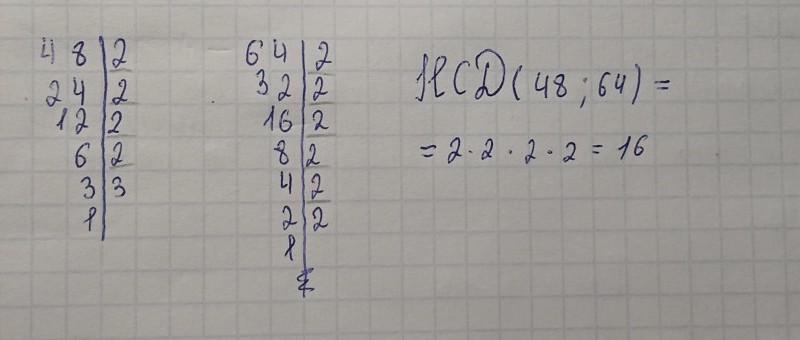 48 | 2
24 | 2
12 | 2
6 | 2
3 | 3
1 |
64 | 2
32 | 2
16 | 2
8 | 2
4 | 2
2 | 2
1 |
НСД(48;64) =
= 2·2·2·2 = 16